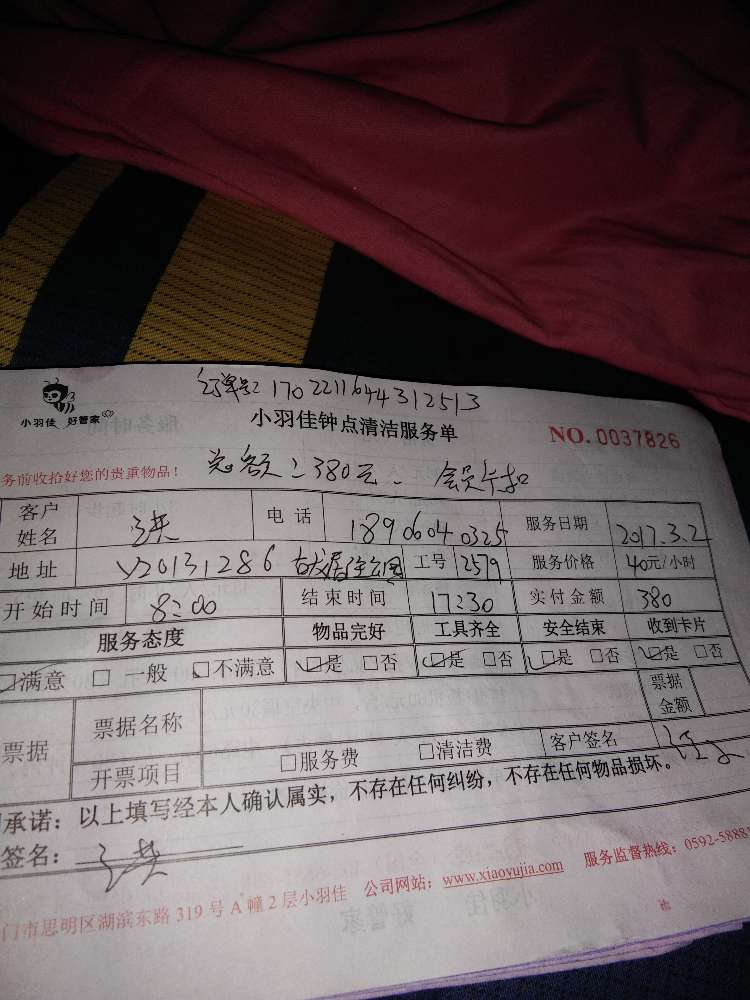 订单号: 1702211644312513
小羽佳 好管家
小羽佳钟点清洁服务单
NO. 0037826
务前收拾好您的贵重物品!
总额:380元. 会员卡扣
客户姓名 电话 18906040325 服务日期 2017.3.2
地址 V20131286 工号 2579 服务价格 40元/小时
开始时间 8:00 结束时间 17:30 实付金额 380
服务态度 物品完好 工具齐全 安全结束 收到卡片
☑满意 □一般 □不满意 ☑是 □否 ☑是 □否 ☑是 □否 ☑是 □否
票据 票据名称 票据金额
开票项目 □服务费 □清洁费 客户签名
承诺:以上填写经本人确认属实,不存在任何纠纷,不存在任何物品损坏。
签名:
门市思明区湖滨东路 319 号 A 幢 2 层小羽佳 公司网站:www.xiaoyujia.com 服务监督热线:0592-5888